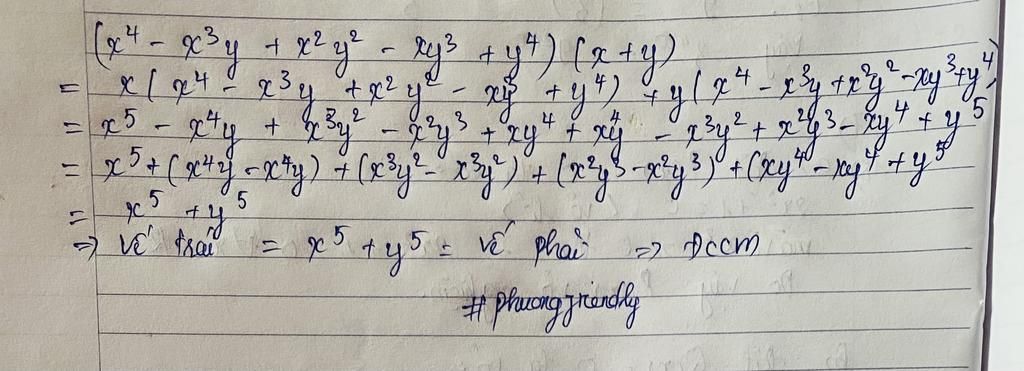 (x⁴ - x³y + x²y² - xy³ + y⁴) (x + y)
= x ( x⁴ - x³y + x²y² - xy³ + y⁴) + y ( x⁴ - x³y + x²y² - xy³ + y⁴)
= x⁵ - x⁴y + x³y² - x²y³ + xy⁴ + xy⁴ - x³y² + x²y³ - xy⁴ + y⁵
= x⁵ + (x⁴y - x⁴y) + (x³y² - x³y²) + (x²y³ - x²y³) + (xy⁴ - xy⁴ + y⁵
= x⁵ + y⁵
=> Vế trái = x⁵ + y⁵ = vế phải => Đccm
# phuongfriendly